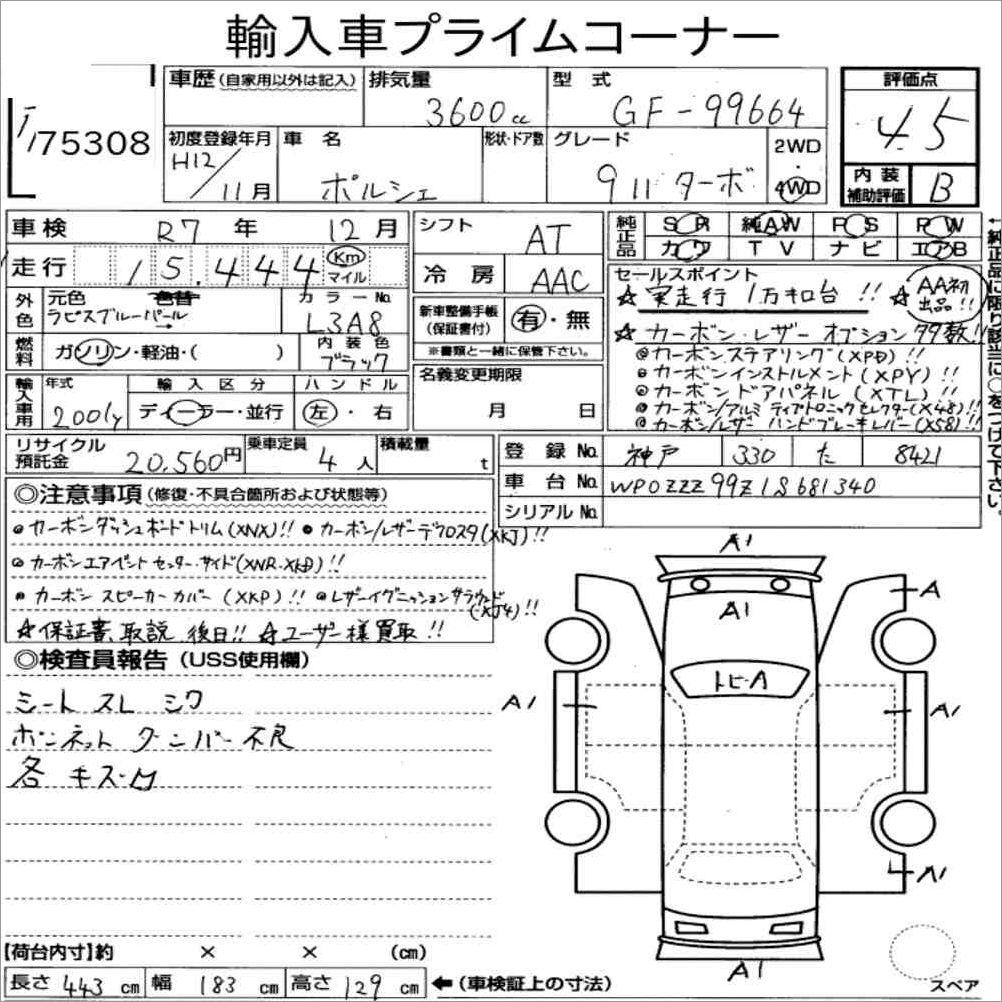 輸入車プライムコーナー
75308
車歴(自家用以外は記入) 排気量 3600cc 型式 GF-99664 評価点 4.5
初度登録年月 H12/11月 車名 ポルシェ 形状・ドア数 グレード 911ターボ 2WD 4WD 内装補助評価 B
車検 R7年 12月 シフト AT 純正品 SR 純AW PS PW
カワ TV ナビ エアB
走行 15,444 Km マイル 冷房 AAC
セールスポイント
☆実走行1万キロ台!! ☆AA初出品!!
外色 元色 ラピスブルーパール 色替 カラーNo. L3A8 新車整備手帳(保証書付) 有・無
※書類と一緒に保管下さい。
☆カーボン・レザーオプション多数!!
燃料 ガソリン・軽油・( ) 内装色 ブラック
◎カーボンステアリング(XPD)!!
◎カーボンインストルメント(XPY)!!
◎カーボンドアパネル(XTL)!!
◎カーボン/アルミティプトロニックセレクター(X48)!!
◎カーボン/レザーハンドブレーキレバー(X58)!!
輸入車用 年式 2001y 輸入区分 ディーラー・並行 ハンドル 左・右 名義変更期限 月 日
リサイクル預託金 20,560円 乗車定員 4人 積載量 t 登録No. 神戸 330 た 8421
車台No. WP0ZZZ99Z1S681340
シリアルNo.
◎注意事項(修復・不具合箇所および状態等)
◎カーボンダッシュボードトリム(XNX)!! ●カーボン/レザーデフロスタ(XKJ)!!
◎カーボンエアベントセンター・サイド(XNR・XKD)!!
●カーボンスピーカーカバー(XKP)!! ◎レザーイグニッションサラウンド(XJ4)!!
☆保証書、取説、後日!! ☆ユーザー様買取!!
◎検査員報告(USS使用欄)
シートスレシワ
ボンネットダンパー不良
各キズ・凹
A1
A1
A
トビーA
A1
A1
A1
A1
【荷台内寸】約 × × (cm)
長さ 443 cm 幅 183 cm 高さ 129 cm ←(車検証上の寸法)
スペア